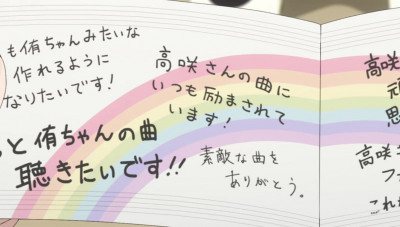 も侑ちゃんみたいな
作れるように
なりたいです!
っと侑ちゃんの曲
聴きたいです!!
高咲さんの曲に
いつも励まされて
います!
素敵な曲を
ありがとう。
高咲
高咲
これ